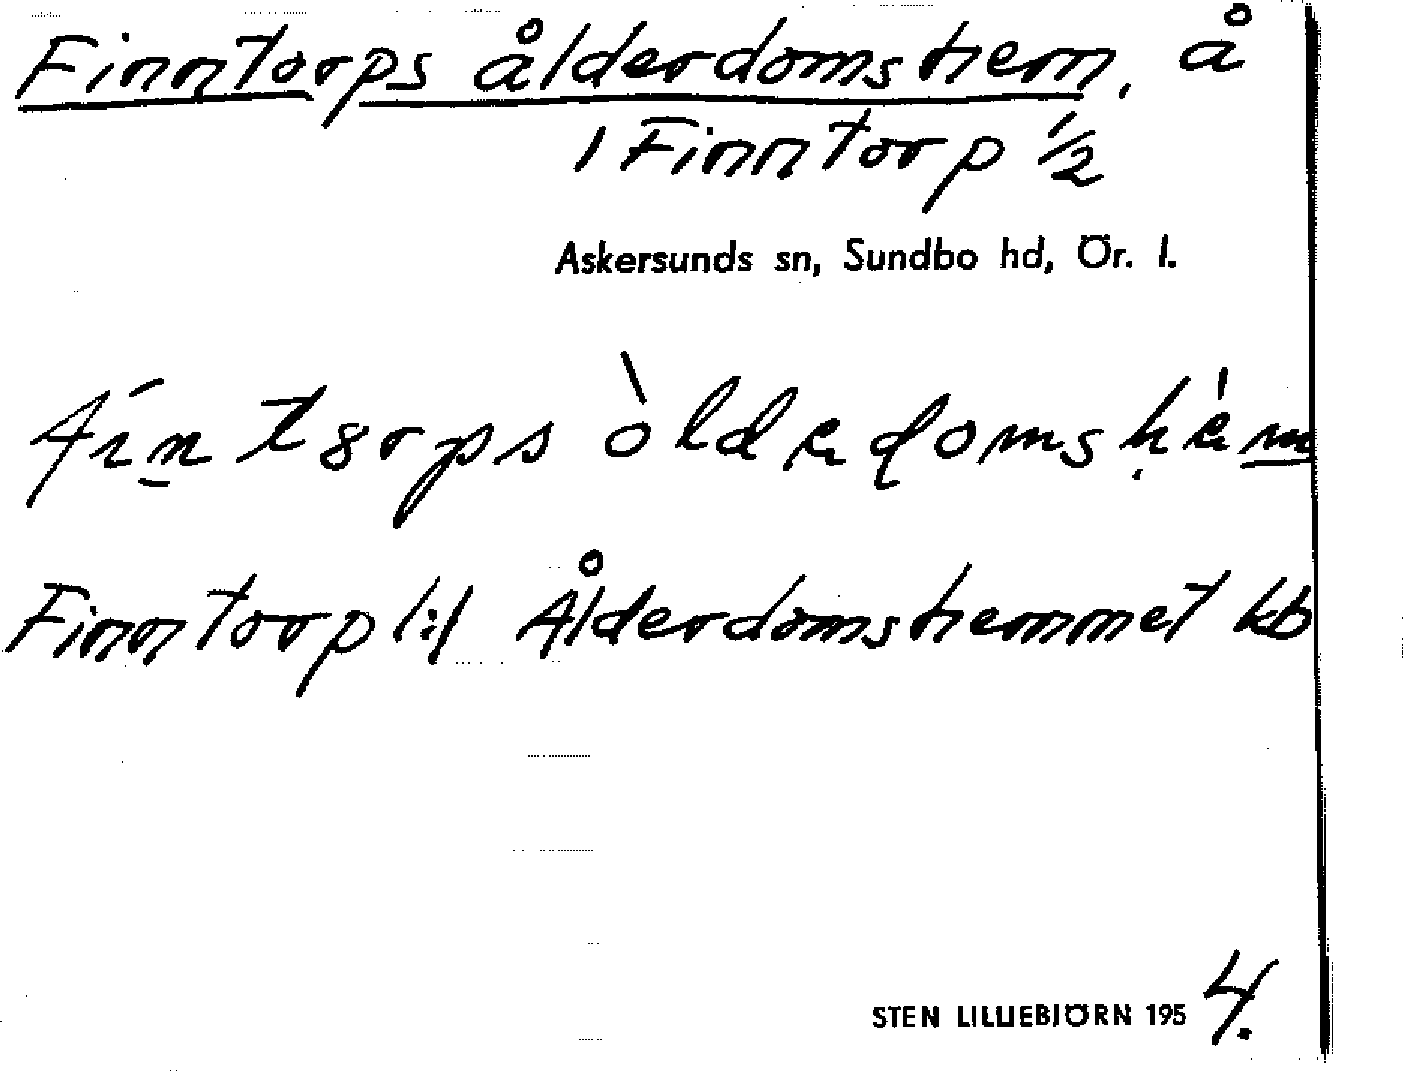 Finntorps ålderdomshem, å
1 Finntorp 1/2
Askersunds sn, Sundbo hd, Ör. l.
Finntorp /:/ Ålderdomshemmet kb
STEN LILLIEBJÖRN 1954.